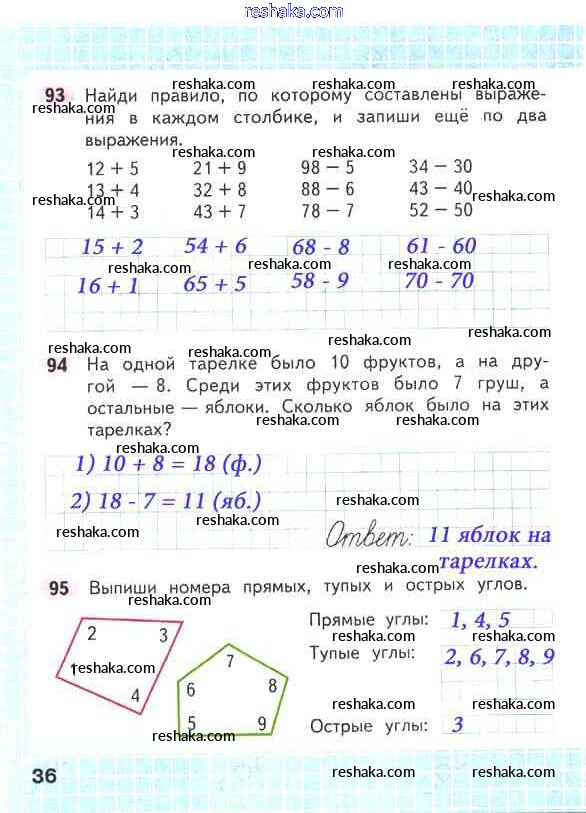 reshaka.com
reshaka.com reshaka.com
93 Найди правило, по которому составлены выраже-
reshaka.com reshaka.com
ния в каждом столбике, и запиши ещё по два
выражения.
reshaka.com reshaka.com
12 + 5 21 + 9 98 − 5 34 − 30
reshaka.com
13 + 4 32 + 8 88 − 6 43 − 40
reshaka.com reshaka.com
14 + 3 43 + 7 78 − 7 52 − 50
15 + 2 54 + 6 68 - 8 61 - 60
reshaka.com reshaka.com reshaka.com
16 + 1 65 + 5 58 - 9 70 - 70
reshaka.com reshaka.com
94 На одной тарелке было 10 фруктов, а на дру-
reshaka.com reshaka.com
гой — 8. Среди этих фруктов было 7 груш, а
остальные — яблоки. Сколько яблок было на этих
тарелках?
reshaka.com reshaka.com
1) 10 + 8 = 18 (ф.)
reshaka.com reshaka.com
2) 18 - 7 = 11 (яб.)
reshaka.com reshaka.com
Ответ: 11 яблок на
тарелках.
reshaka.com
95 Выпиши номера прямых, тупых и острых углов.
reshaka.com reshaka.com
Прямые углы: 1, 4, 5
2 3
reshaka.com
Тупые углы: 2, 6, 7, 8, 9
7
1 reshaka.com
6 8
4
reshaka.com
5 9
Острые углы: 3
reshaka.com reshaka.com
36
reshaka.com reshaka.com
reshaka.com